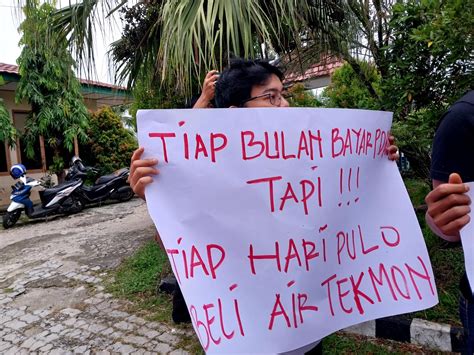 TIAP BULAN BAYAR
TAPI !!!
TIAP HARI PULO
BELI AIR TEKMON